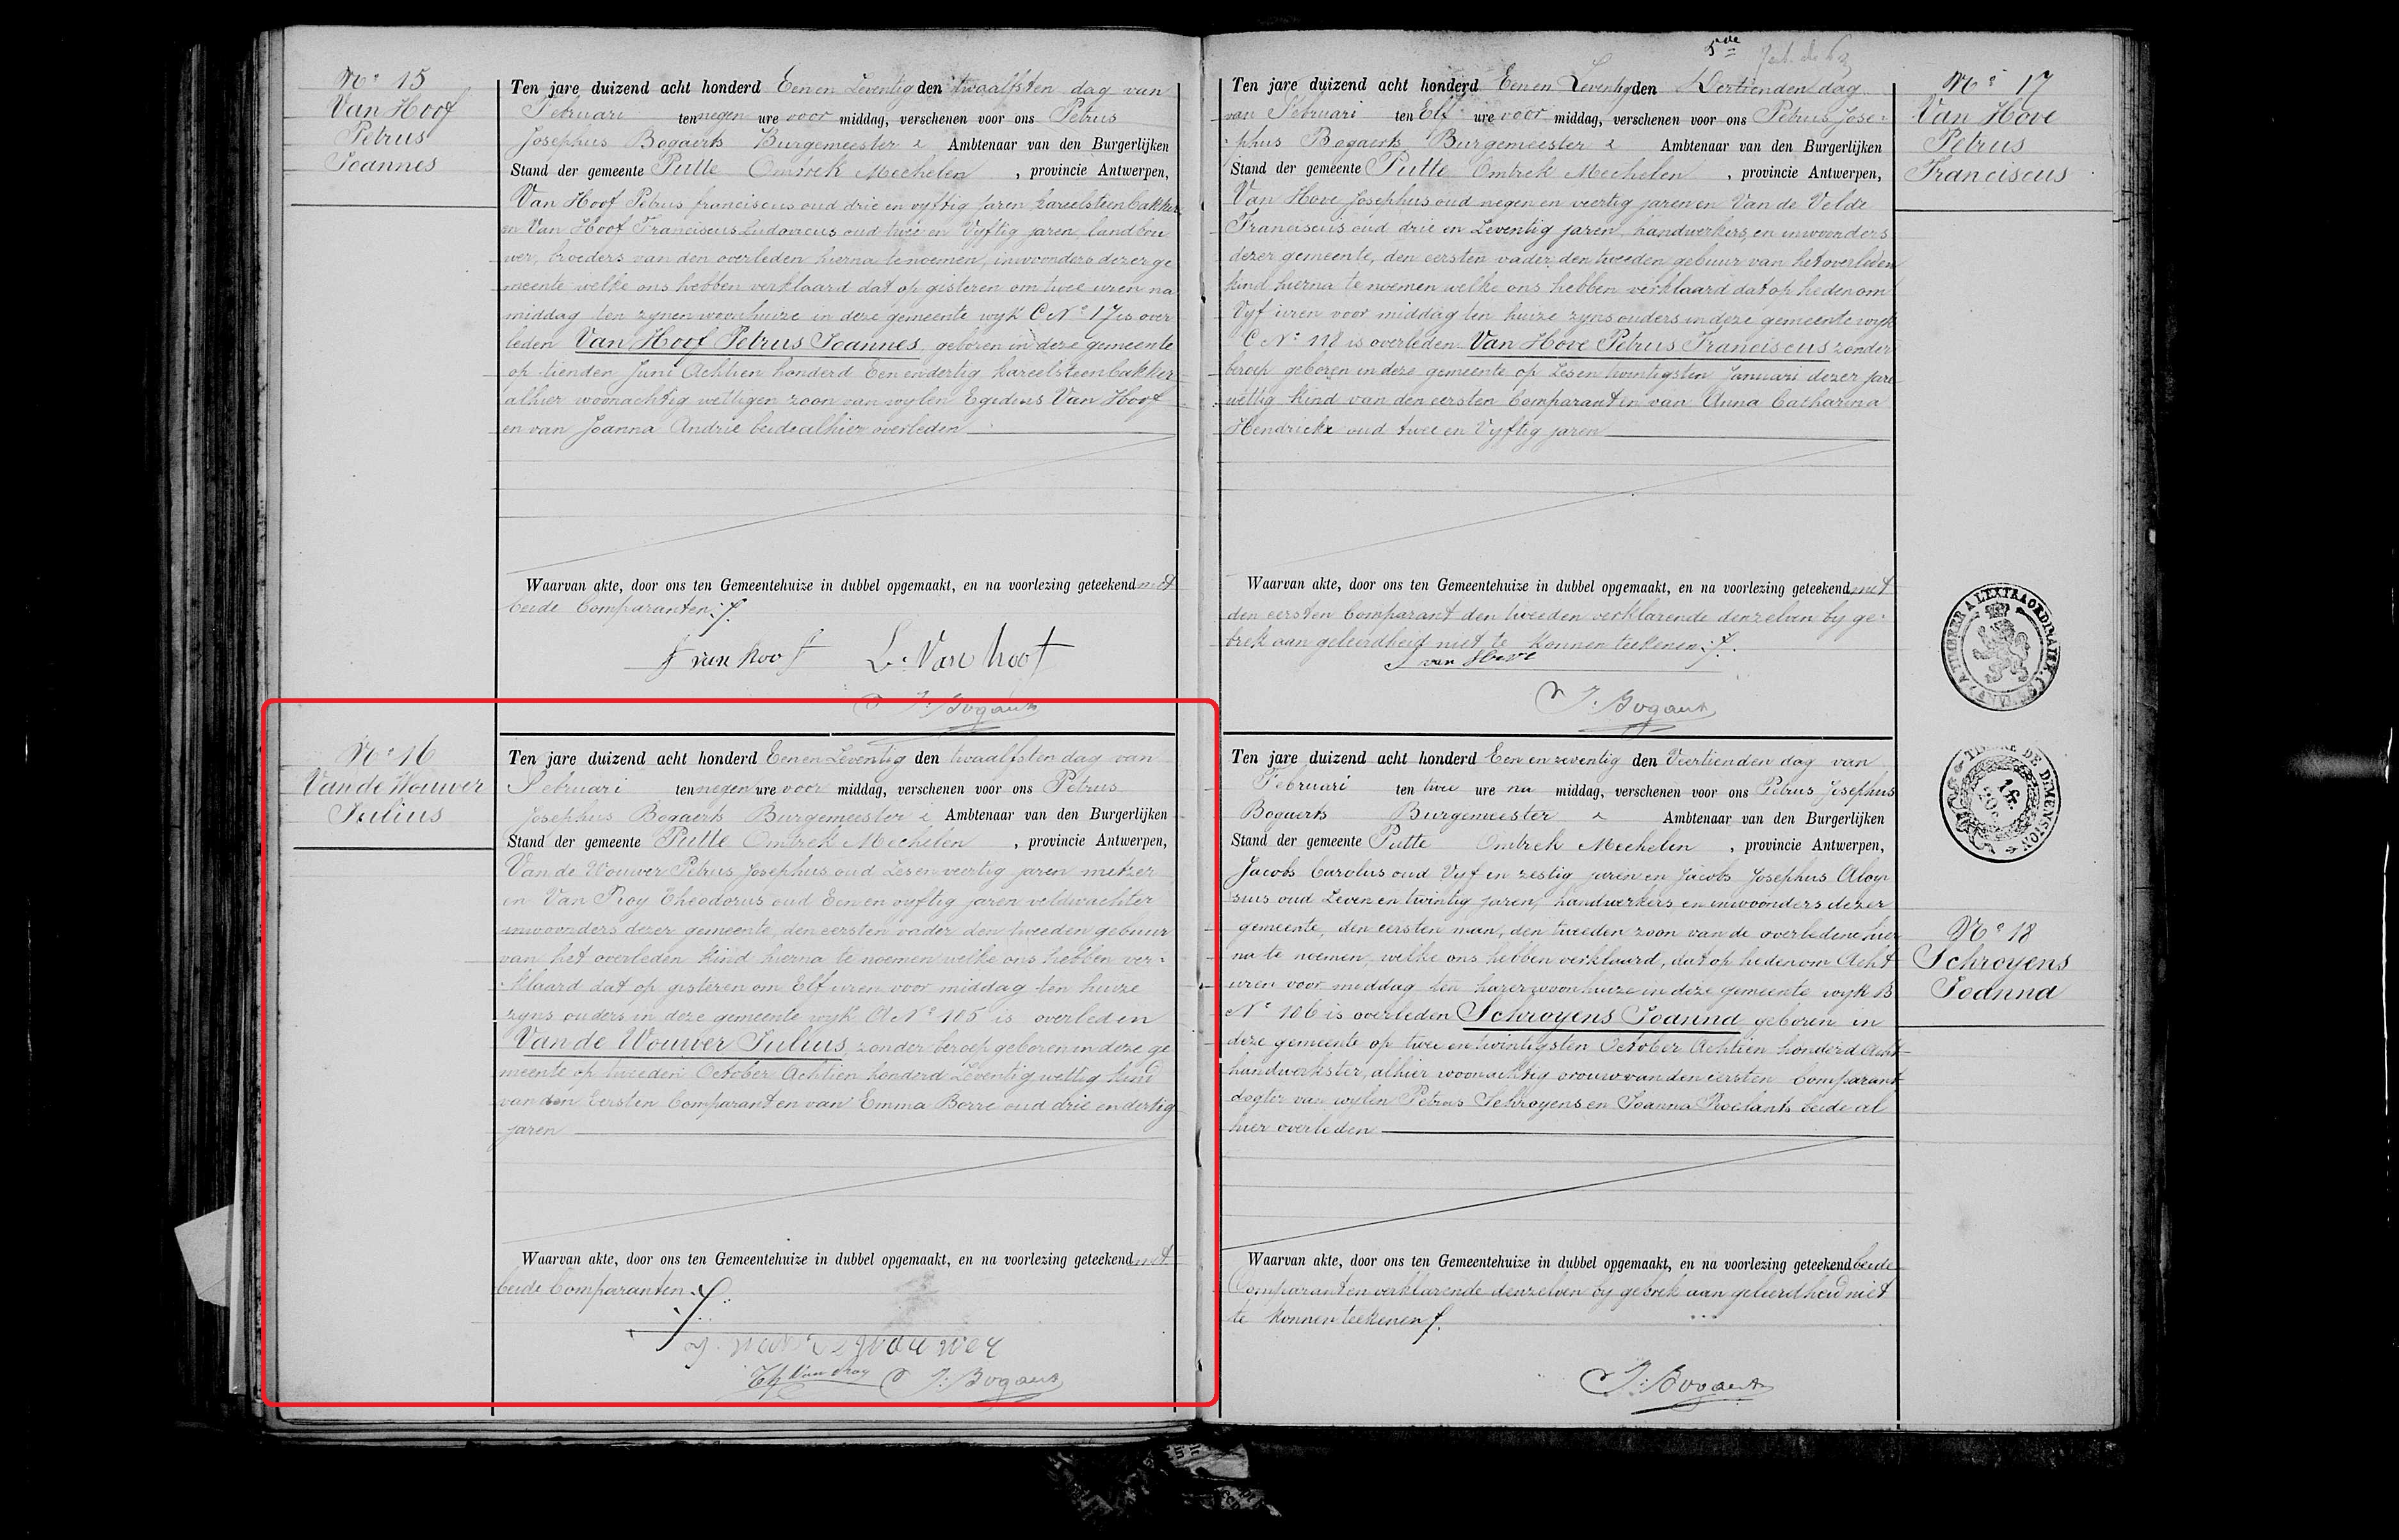 Nº 15
Van Hoof
Petrus
Joannes
Ten jare duizend acht honderd Een en Zeventig den twaalfsten dag van
Februari ten negen ure voor middag, verschenen voor ons Petrus
Josephus Bogaerts Burgemeester & Ambtenaar van den Burgerlijken
Stand der gemeente Putte Omtrek Mechelen , provincie Antwerpen,
Van Hoof Petrus franciscus oud drie en vyftig jaren kareelsteenbakker
en Van Hoof Franciscus Ludovicus oud twee en Vyftig jaren, landbou
wer, broeders van den overleden hierna tenoemen, inwoonders dezer ge
meente welke ons hebben verklaard dat op gisteren om twee uren na
middag ten zynen woonhuize in deze gemeente wyk C Nº 17 is over
leden Van Hoof Petrus Joannes, geboren in deze gemeente
op tienden Juni Achtien honderd Een en dertig kareelsteenbakker
alhier woonachtig wettigen zoon van wylen Egidius Van Hoof
en van Joanna Andrie beide alhier overleden
Waarvan akte, door ons ten Gemeentehuize in dubbel opgemaakt, en na voorlezing geteekend met
beide Comparanten ./.
F van hoof L. Van hoof
P. J. Bogaerts
Nº 16
Van de Wouwer
Julius
Ten jare duizend acht honderd Een en Zeventig den twaalfsten dag van
Februari ten negen ure voor middag, verschenen voor ons Petrus
Josephus Bogaerts Burgemeester & Ambtenaar van den Burgerlijken
Stand der gemeente Putte Omtrek Mechelen , provincie Antwerpen,
Van de Wouwer Petrus Josephus oud Zes en veertig jaren metzer
en Van Roy Theodorus oud Een en vyftig jaren veldwachter
inwoonders dezer gemeente, den eersten vader den tweeden gebuur
van het overleden kind hierna te noemen welke ons hebben ver:
:klaard dat op gisteren om Elf uren voor middag ten huize
zyns ouders in deze gemeente wyk A Nº 105 is overleden
Van de Wouwer Julius, zonder beroep geboren in deze ge
meente op tweeden October Achtien honderd Zeventig wettig kind
van den Eersten Comparant en van Emma Borre oud drie en dertig
jaren
Waarvan akte, door ons ten Gemeentehuize in dubbel opgemaakt, en na voorlezing geteekend met
beide Comparanten ./.
J. van de Wouwer
Th Van Roy P. J. Bogaerts
5de
Ten jare duizend acht honderd Een en Zeventig den Dertienden dag
van Februari ten Elf ure voor middag, verschenen voor ons Petrus Jose:
:phus Bogaerts Burgemeester & Ambtenaar van den Burgerlijken
Stand der gemeente Putte Omtrek Mechelen , provincie Antwerpen,
Van Hove Josephus oud negen en veertig jaren en Van de Velde
Franciscus oud drie en Zeventig jaren, handwerkers, en inwoonders
dezer gemeente, den eersten vader den tweeden gebuur van het overleden
kind hierna te noemen welke ons hebben verklaard dat op heden om
Vyf uren voor middag ten huize zyns ouders in deze gemeente wyk
C Nº 118 is overleden Van Hove Petrus Franciscus zonder
beroep geboren in deze gemeente op Zesen twintigsten Januari dezer jare
wettig kind van den eersten Comparant en van Anna Catharina
Hendrickx oud twee en Vyftig jaren
Waarvan akte, door ons ten Gemeentehuize in dubbel opgemaakt, en na voorlezing geteekend met
den eersten Comparant den tweeden verklarende denzelven by ge:
brek aan geleerdheid niet te konnen teekenen ./.
J van Hove
P. J. Bogaerts
Nº 17
Van Hove
Petrus
Franciscus
TIMBRE DE DIMENSION
1 fr.
20 c.
Ten jare duizend acht honderd Een en zeventig den Veertienden dag van
Februari ten twee ure na middag, verschenen voor ons Petrus Josephus
Bogaerts Burgemeester & Ambtenaar van den Burgerlijken
Stand der gemeente Putte Omtrek Mechelen , provincie Antwerpen,
Jacobs Carolus oud Vyf en zestig jaren en Jacobs Josephus Aloy
sius oud Zeven en twintig jaren, handwerkers en inwoonders dezer
gemeente, den eersten man, den tweeden zoon van de overledene hier
na te noemen, welke ons hebben verklaard, dat op heden om Acht
uren voor middag ten harer woonhuize in deze gemeente wyk B
Nº 106 is overleden Schroyens Joanna geboren in
deze gemeente op twee en twintigsten October Achtien honderd Acht
handwerkster, alhier woonachtig vrouw van den eersten Comparant
dogter van wylen Petrus Schroyens en Joanna Roelants beide al
hier overleden
Waarvan akte, door ons ten Gemeentehuize in dubbel opgemaakt, en na voorlezing geteekend beide
Comparanten verklarende denzelven by gebrek aan geleerdheid niet
te konnen teekenen ./.
P. J. Bogaerts
Nº 18
Schroyens
Joanna